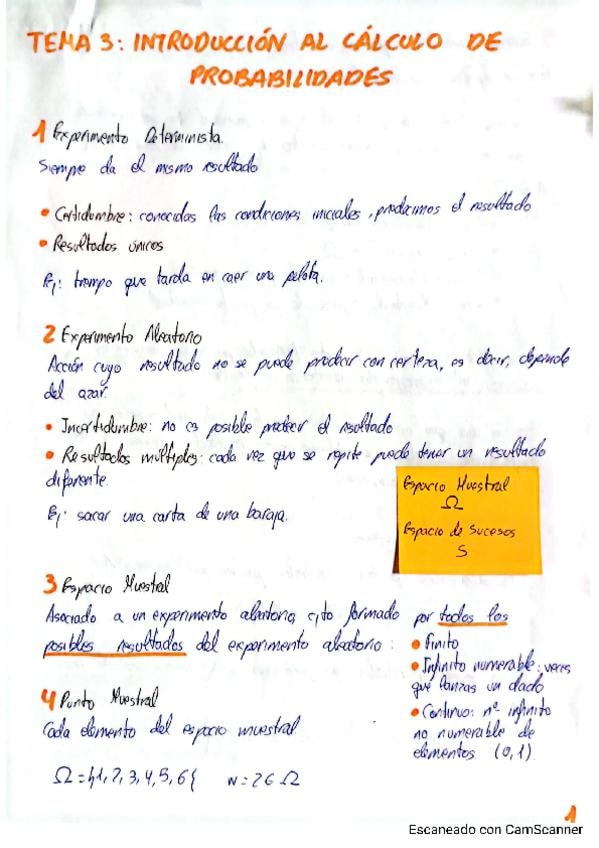 TEMA 3: INTRODUCCIÓN AL CÁLCULO DE
PROBABILIDADES
1 Experimento Determinista.
Siempre da el mismo resultado
• Certidumbre: conocidas las condiciones iniciales, predecimos el resultado
• Resultados únicos
Ej: tiempo que tarda en caer una pelota.
2 Experimento Aleatorio
Acción cuyo resultado no se puede predecir con certeza, es decir, depende
del azar.
• Incertidumbre: no es posible predecir el resultado
• Resultados múltiples: cada vez que se repite puede tener un resultado
diferente.
Ej: sacar una carta de una baraja.
Espacio Muestral
Ω
Espacio de Sucesos
S
3 Espacio Muestral
Asociado a un experimento aleatorio, cjto formado por todos los
posibles resultados del experimento aleatorio:
• Finito
• Infinito numerable: veces
que lanzas un dado
• Continuo: nº infinito
no numerable de
elementos (0,1).
4 Punto Muestral
Cada elemento del espacio muestral
Ω = {1, 2, 3, 4, 5, 6{ w = 2 ∈ Ω
1
Escaneado con CamScanner